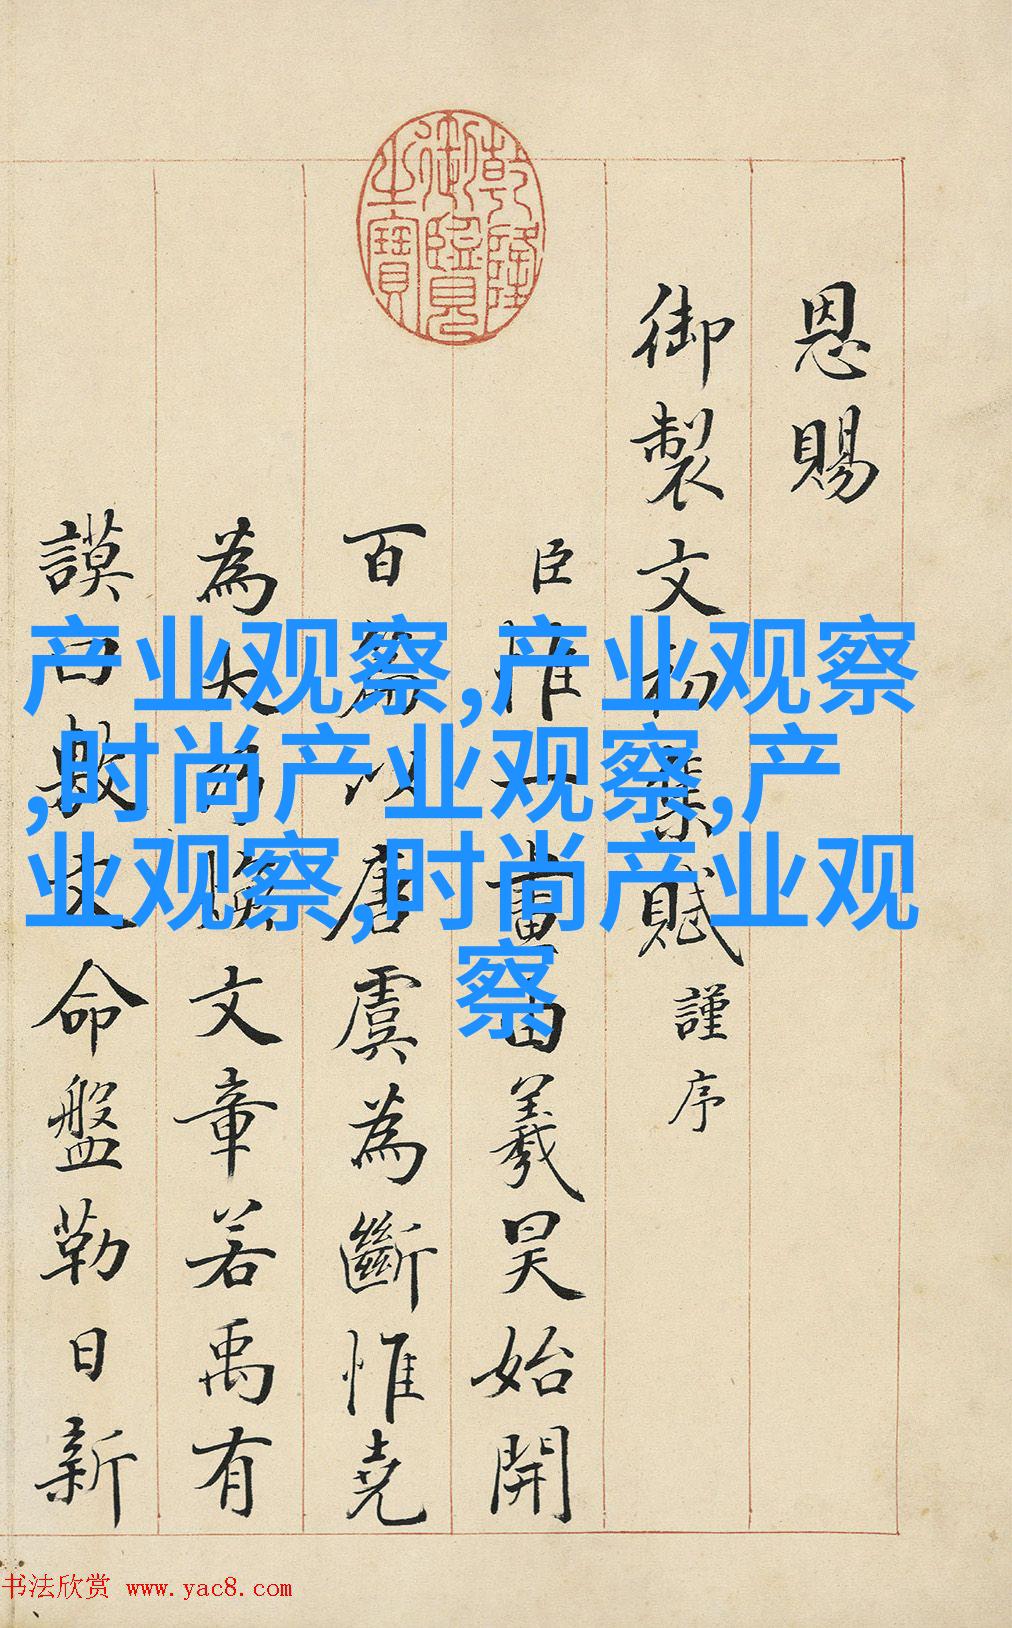 乾隆
御覽
之寶
恩賜
御製文初集賦謹序
臣惟一畫由羲昊始開
百篇以唐虞為斷惟堯
為大乃煥文章若禹有
謨曰敷文命盤勒日新
产业观察,产业观察
,时尚产业观察,产
业观察,时尚产业观
察
书法欣赏 www.yac8.com